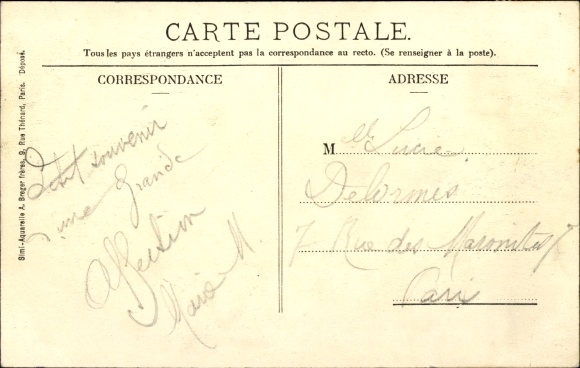 CARTE POSTALE.
Tous les pays étrangers n'acceptent pas la correspondance au recto. (Se renseigner à la poste).
CORRESPONDANCE
Petit souvenir
d'une grande
Affection
Marie M.
Simi-Aquarelle A. Breger frères, 9, Rue Thénard, Paris. Déposé.
ADRESSE
Mlle Lucie
Delormes
7 Rue des Maronites 7
Paris